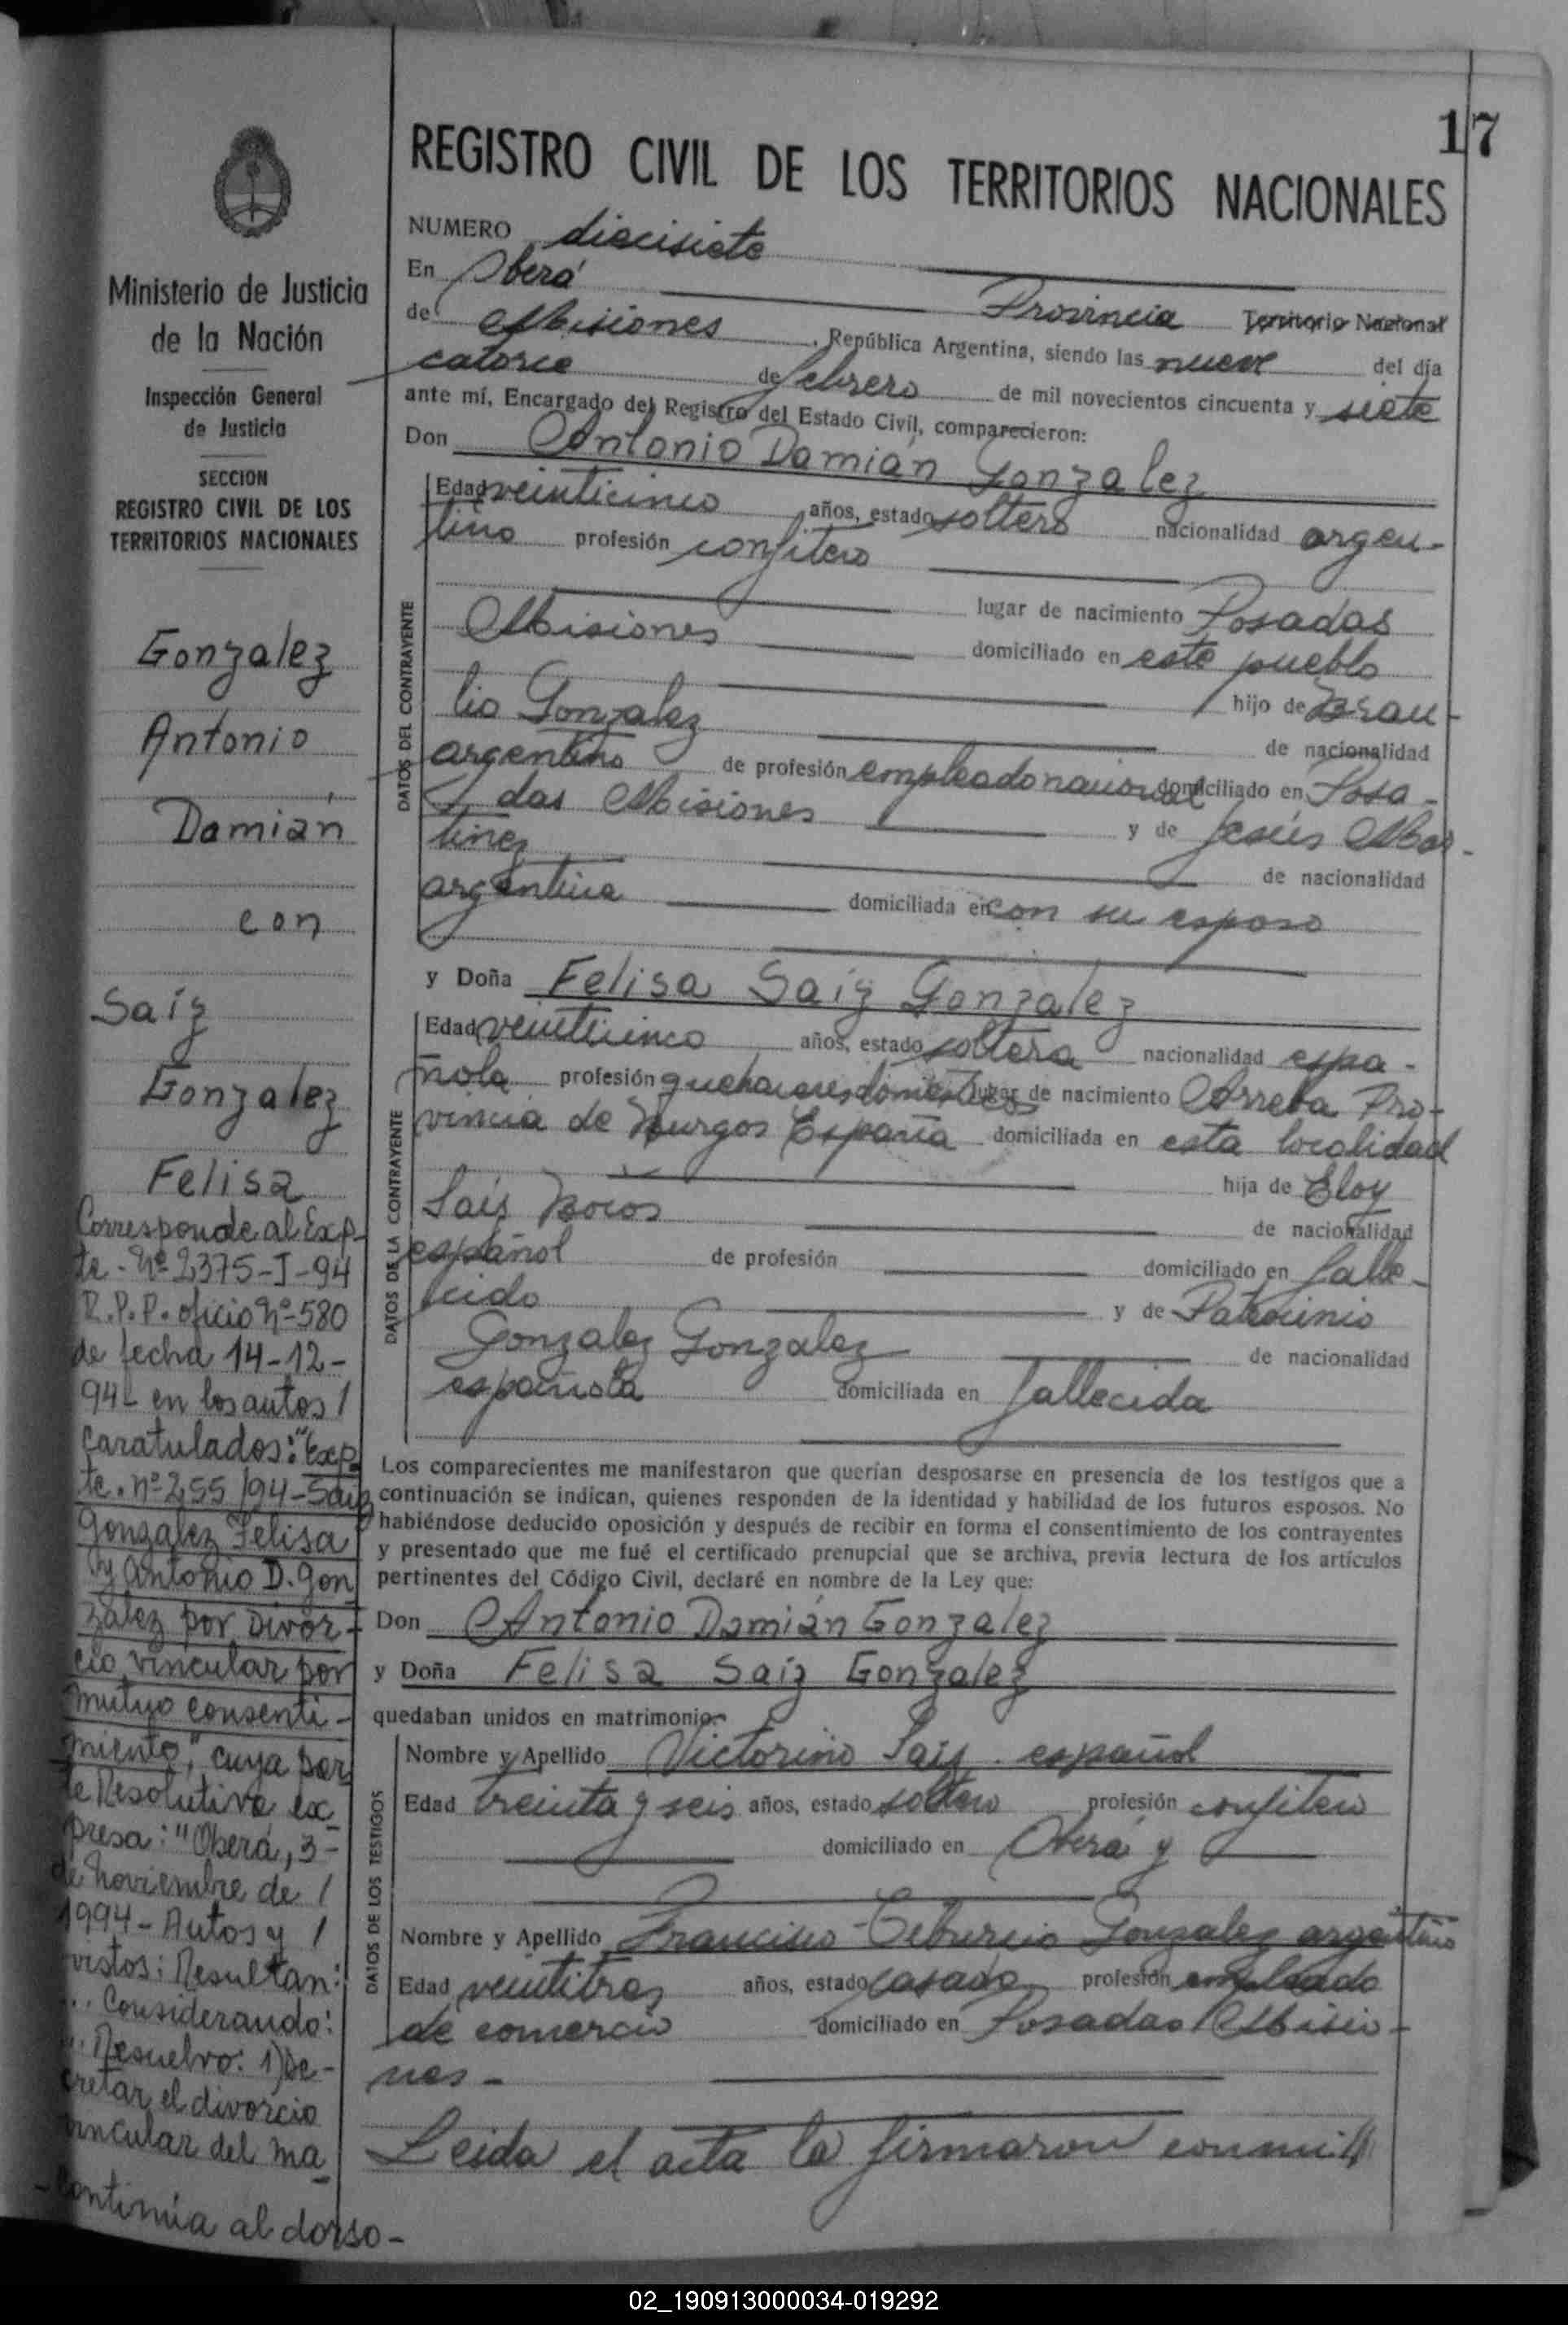 17
REGISTRO CIVIL DE LOS TERRITORIOS NACIONALES
Ministerio de Justicia
de la Nación
Inspección General
de Justicia
SECCION
REGISTRO CIVIL DE LOS
TERRITORIOS NACIONALES
Gonzalez
Antonio
Damián
con
Saíz
Gonzalez
Felisa
Corresponde al Exp-
te. Nº 2375-J-94
R.P.P. oficio Nº 580
de fecha 14-12-
94 en los autos /
caratulados: "Exp
te. nº 255/94-Saiz
Gonzalez Felisa
y Antonio D. Gon
zalez por Divor-
cio vincular por
mutuo consenti-
miento", cuya par
te Resolutiva ex
presa: "Oberá, 3-
de Noviembre de /
1994- Autos y /
vistos: Resultan:
... Considerando:
... Resuelvo: 1) De-
cretar el divorcio
vincular del ma
-continúa al dorso-
NUMERO diecisiete
En Oberá
Provincia Territorio Nacional
de Misiones, República Argentina, siendo las nueve del día
catorce de febrero de mil novecientos cincuenta y siete
ante mí, Encargado del Registro del Estado Civil, comparecieron:
Don Antonio Damián Gonzalez
DATOS DEL CONTRAYENTE
Edad veinticinco años, estado soltero nacionalidad argen-
tino profesión confitero
lugar de nacimiento Posadas
Misiones domiciliado en este pueblo
hijo de Brau-
lio Gonzalez de nacionalidad
argentino de profesión empleado nacional domiciliado en Posa-
das Misiones y de Jesús Mar-
tinez de nacionalidad
argentina domiciliada en con su esposo
y Doña Felisa Saíz Gonzalez
DATOS DE LA CONTRAYENTE
Edad veinticinco años, estado soltera nacionalidad espa-
ñola profesión quehaceres domésticos lugar de nacimiento Arreba Pro-
vincia de Burgos España domiciliada en esta localidad
hija de Eloy
Saiz Bocos de nacionalidad
español de profesión domiciliado en falle-
cido y de Patrocinio
Gonzalez Gonzalez de nacionalidad
española domiciliada en fallecida
Los comparecientes me manifestaron que querían desposarse en presencia de los testigos que a
continuación se indican, quienes responden de la identidad y habilidad de los futuros esposos. No
habiéndose deducido oposición y después de recibir en forma el consentimiento de los contrayentes
y presentado que me fué el certificado prenupcial que se archiva, previa lectura de los artículos
pertinentes del Código Civil, declaré en nombre de la Ley que:
Don Antonio Damián Gonzalez
y Doña Felisa Saíz Gonzalez
quedaban unidos en matrimonio.
DATOS DE LOS TESTIGOS
Nombre y Apellido Victorino Saiz español
Edad treinta y seis años, estado soltero profesión confitero
domiciliado en Oberá y
Nombre y Apellido Francisco Tiburcio Gonzalez argentino
Edad veintitres años, estado casado profesión empleado
de comercio domiciliado en Posadas Misio-
nes-
Leida el acta la firmaron conmi
02_190913000034-019292